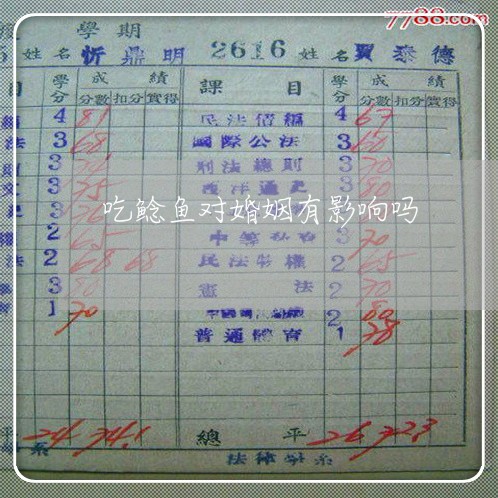 7788.com
學期
姓名 忻鼎明 2616 姓名 賈泰德
目 學分 成績 課目 學分 成績
分數 扣分 實得 分數 扣分 實得
4 81 民法債編 4 67
法 3 68 國際公法 3 60
3 刑法總則 3 70
3 75 西洋通史 3 80
吃鲶鱼对婚姻有影响吗
2 65 3 70
法 2 68 68 民法物權 2 65
3 80 憲法 2 70
1 70 2 80
普通體育 1 78
24 74.1 總平 26 72.3
系 法律學系